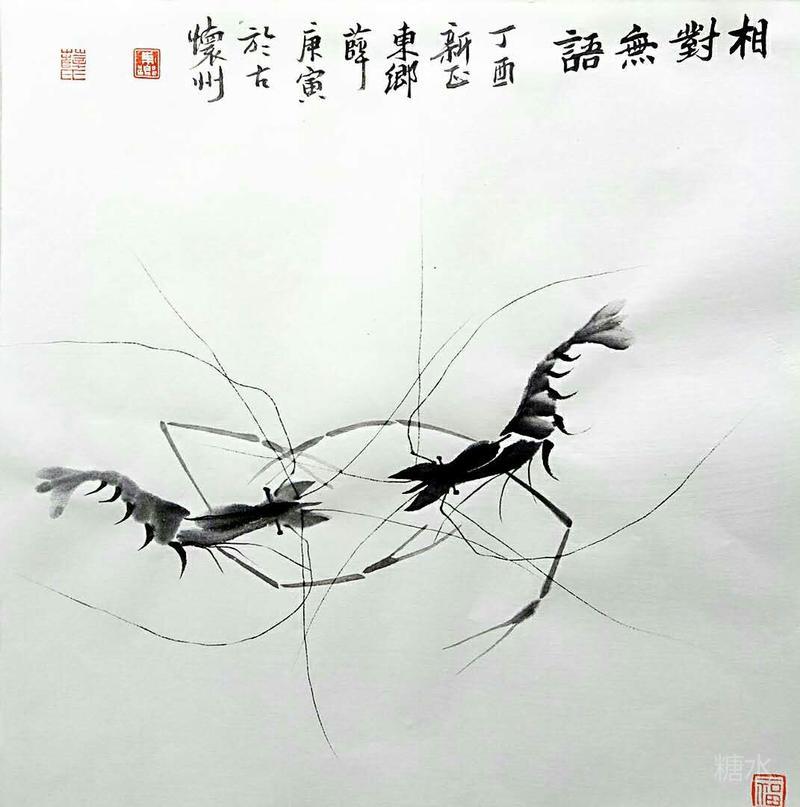 相對無語
丁酉
新正
東鄉
薛
庚寅
於古
懷州
福
糖水